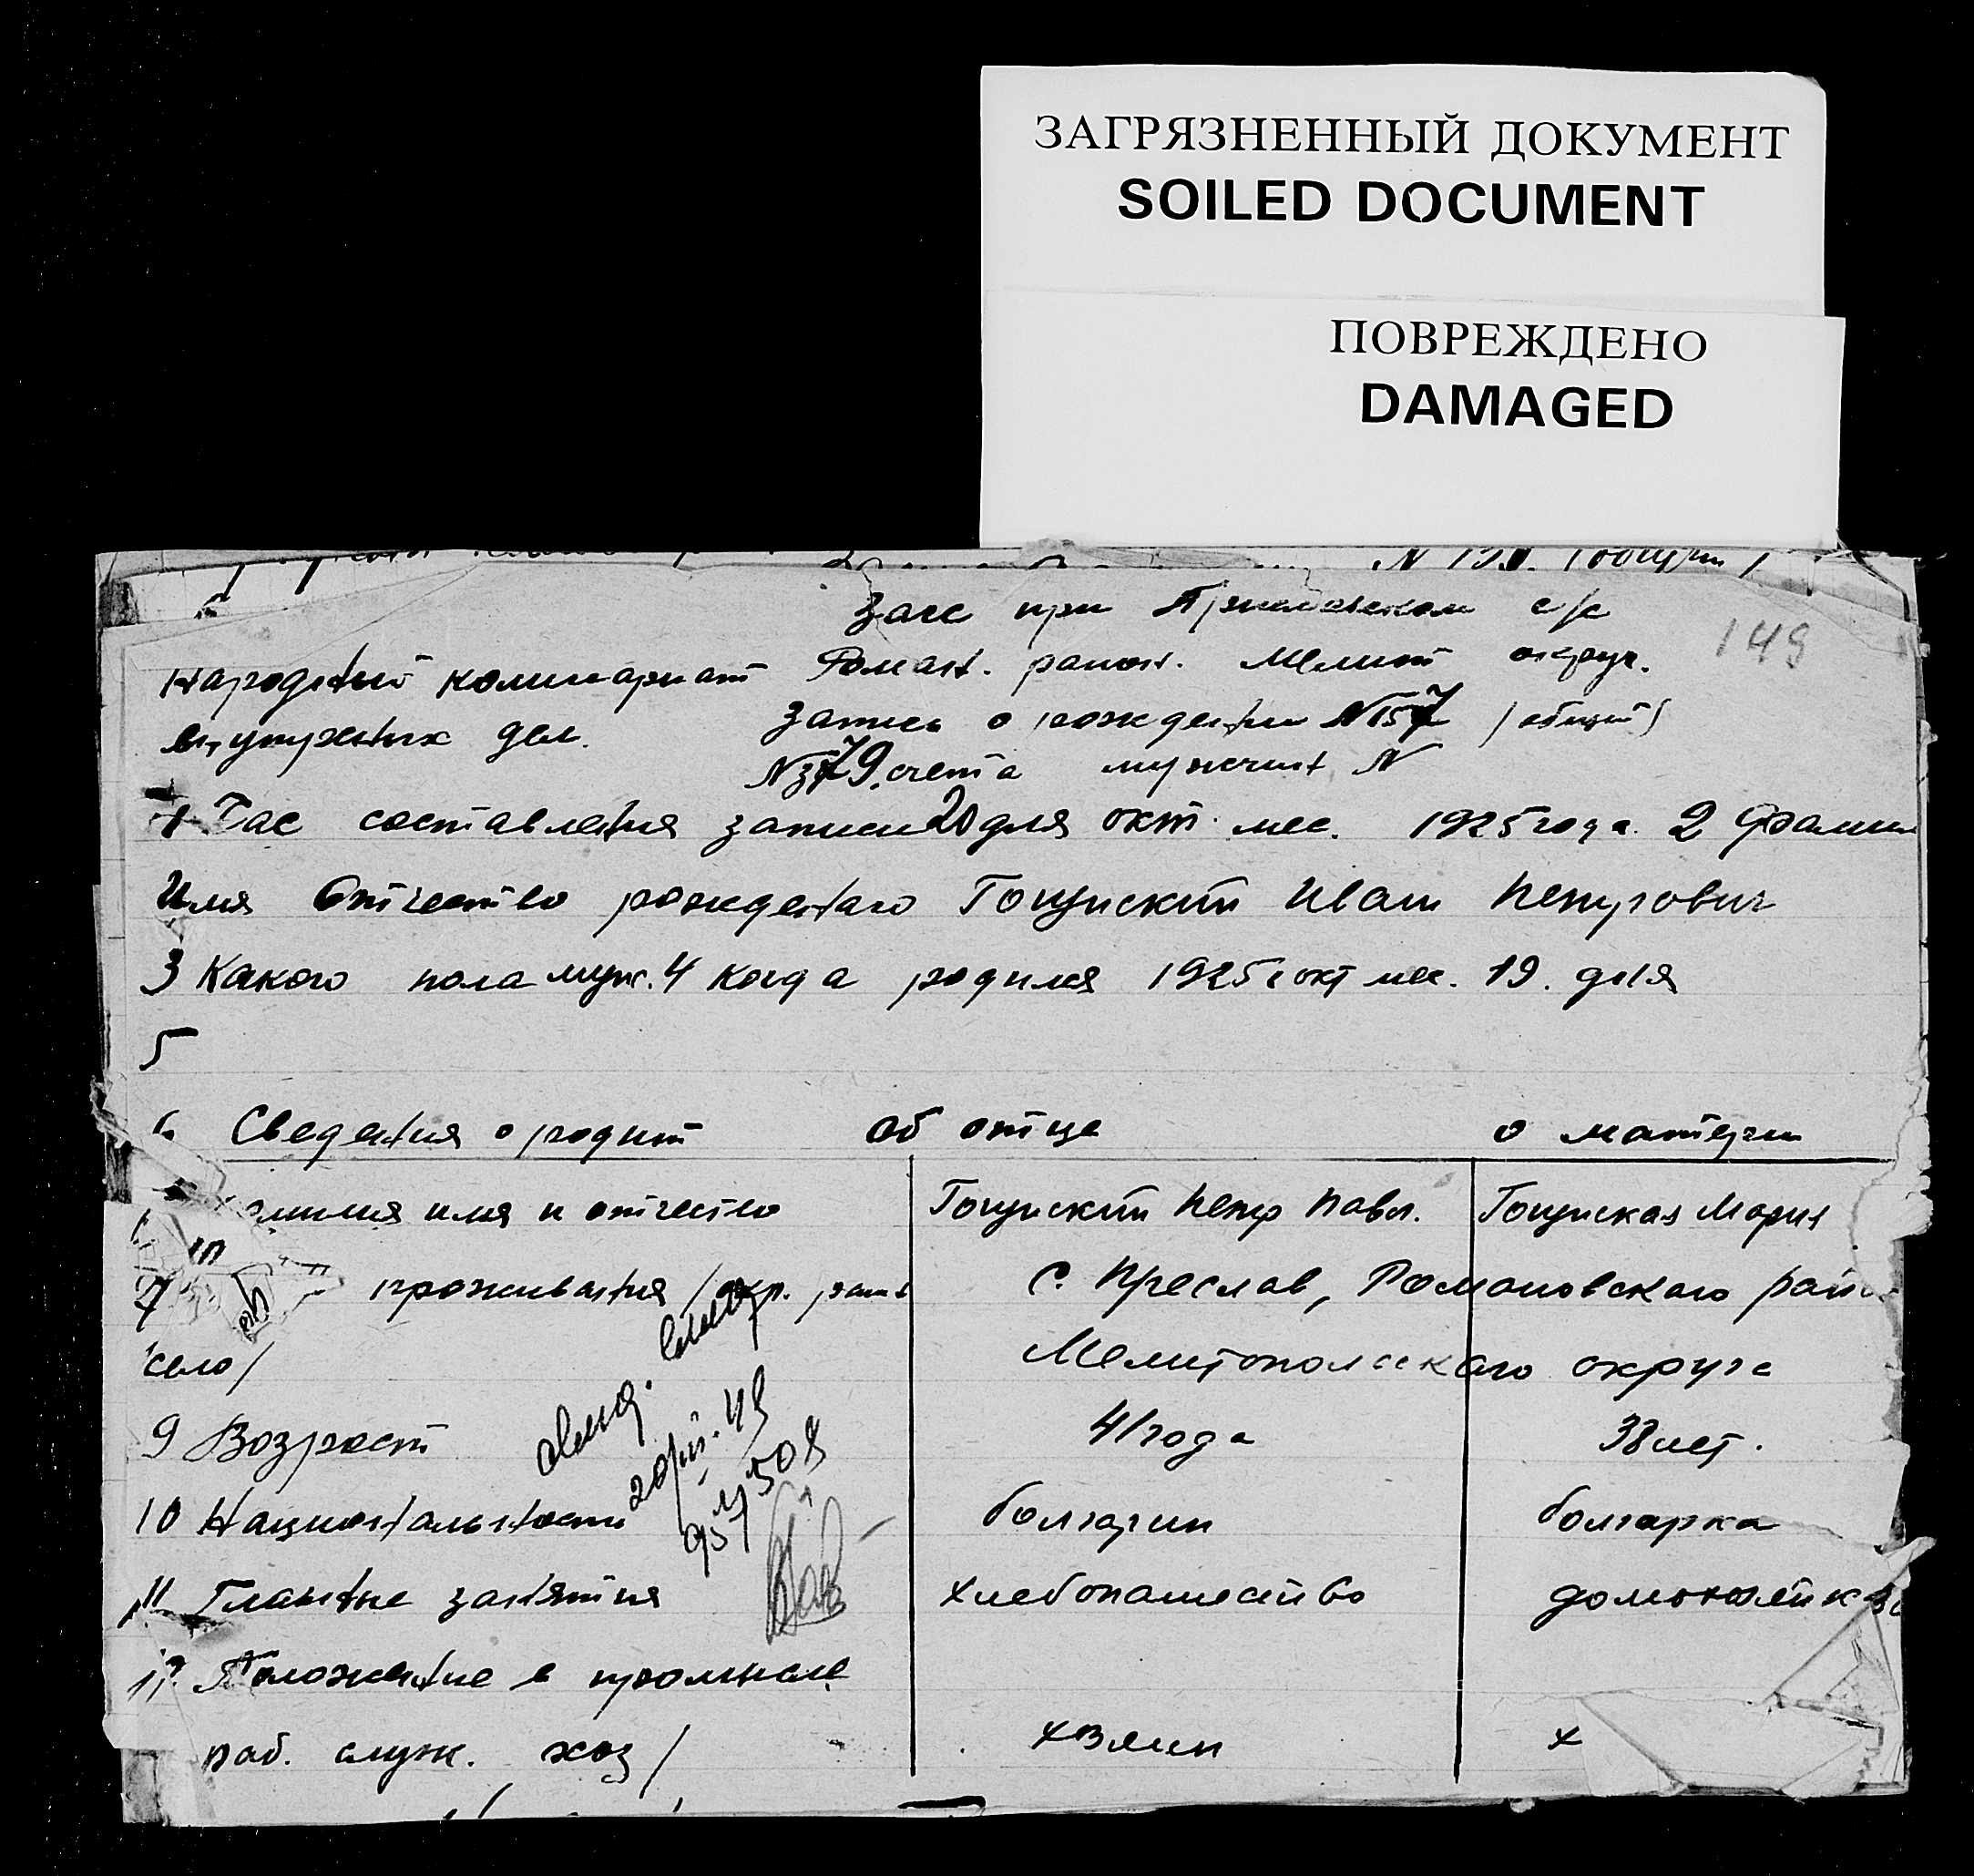 ЗАГРЯЗНЕННЫЙ ДОКУМЕНТ
SOILED DOCUMENT
ПОВРЕЖДЕНО
DAMAGED
Загс при с/с
149
Народный комиссариат Роман. район. Мелит округ.
внутренних дел. Запись о рождении N 157 (общий)
N 379. счета мужчин N
1 Час составления записи 20 дня окт. мес. 1925 года. 2 Фамил
Имя Отчество рожденаго Гоцуский Иван Петрович
3 Какого пола муж. 4 когда родился 1925 г окт мес. 19. дня
5
6 Сведения о родит об отце о матери
амилия имя и отчество Гоцуский Петр Павл. Гоцуская Мария
проживания / окр. с. Преслав, Романовского рай
село / Мелитопольского округа
9 Возраст 41 года 38 лет.
10 Национальности болгарин болгарка
11 Главные занятия хлебопашество
12 Положение в промысле
раб. служ. хоз / хзяин х